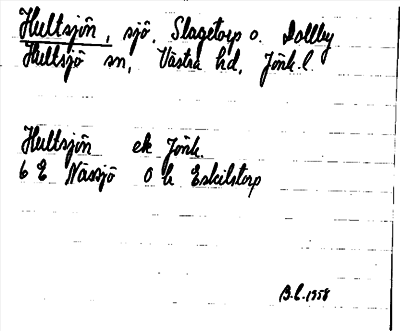 Hultsjön, sjö, Slagetorp o.
Hultsjö sn, Västra hd, Jönk. l.
Hultsjön ek Jönk.
6 E Nässjö 0 h Eskilstorp
B.L. 1958